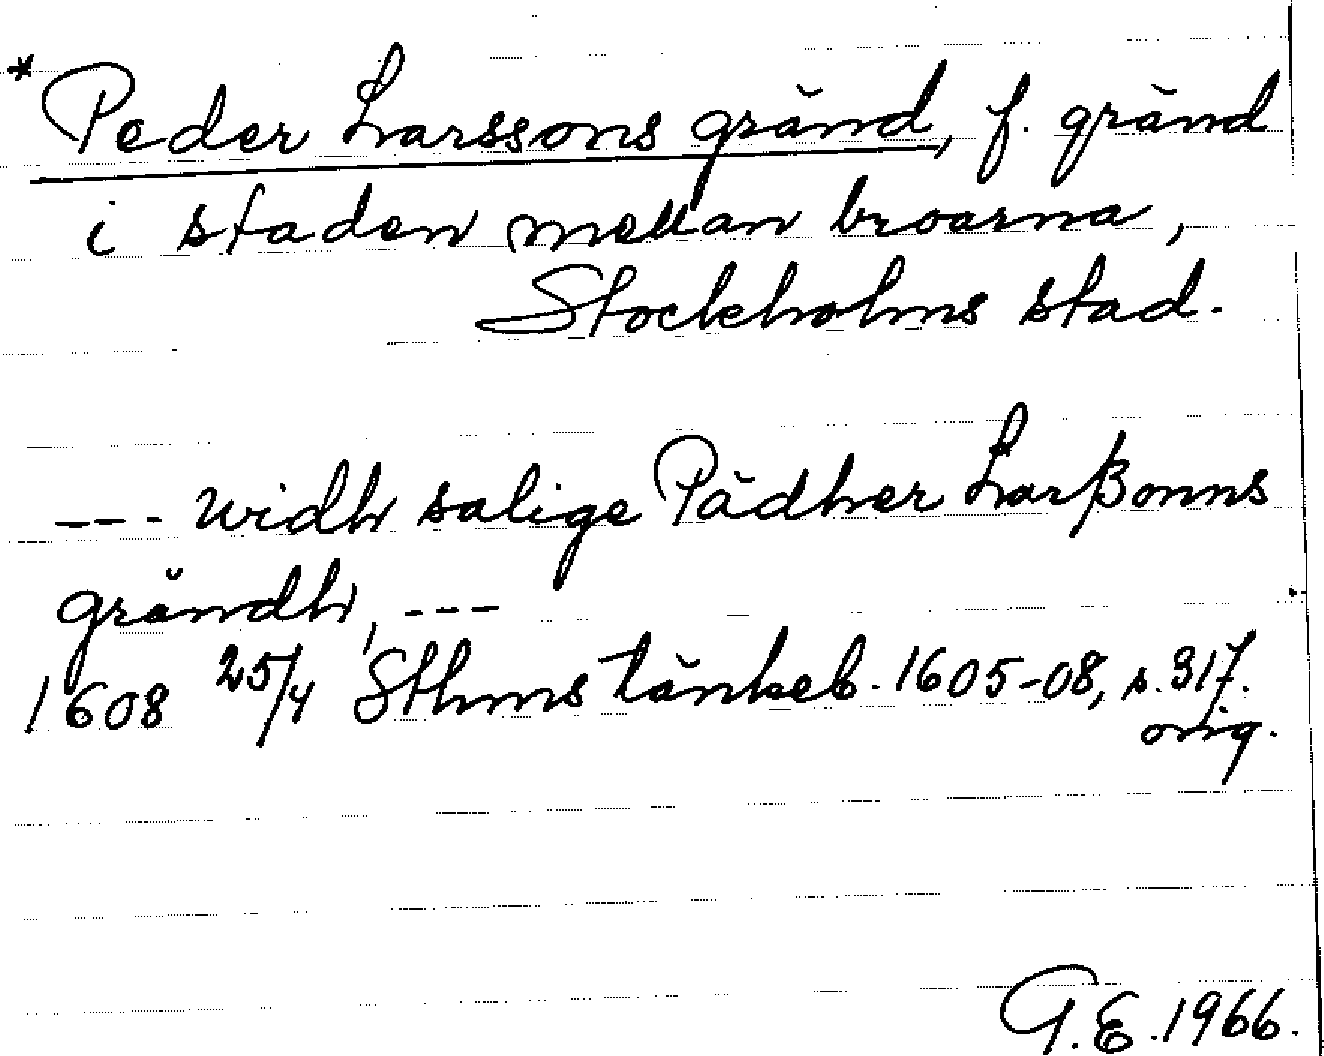 * Peder Larssons gränd, f. gränd
i staden mellan broarna,
Stockholms stad.
--- widh salige Pädher Larßonns
grändh, ---
1608 25/4 Sthms tänkeb. 1605-08, s. 317.
orig.
G.E. 1966.